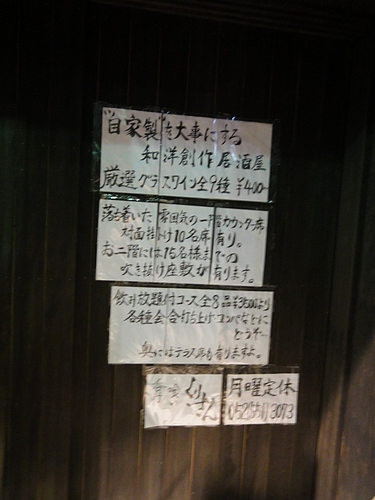 "自家製"を大事にする
和洋創作居酒屋
厳選グラスワイン全9種 ¥400-
落ち着いた雰囲気の一階カウンター席
対面掛け10名席有り。
お二階には15名様までの
吹き抜け座敷が有ります。
飲み放題付コース全8品¥3500より
各種会合打ち上げコンパなどに
どうぞ…
奥にはテラス席も有りますよ。
くりきん
月曜定休